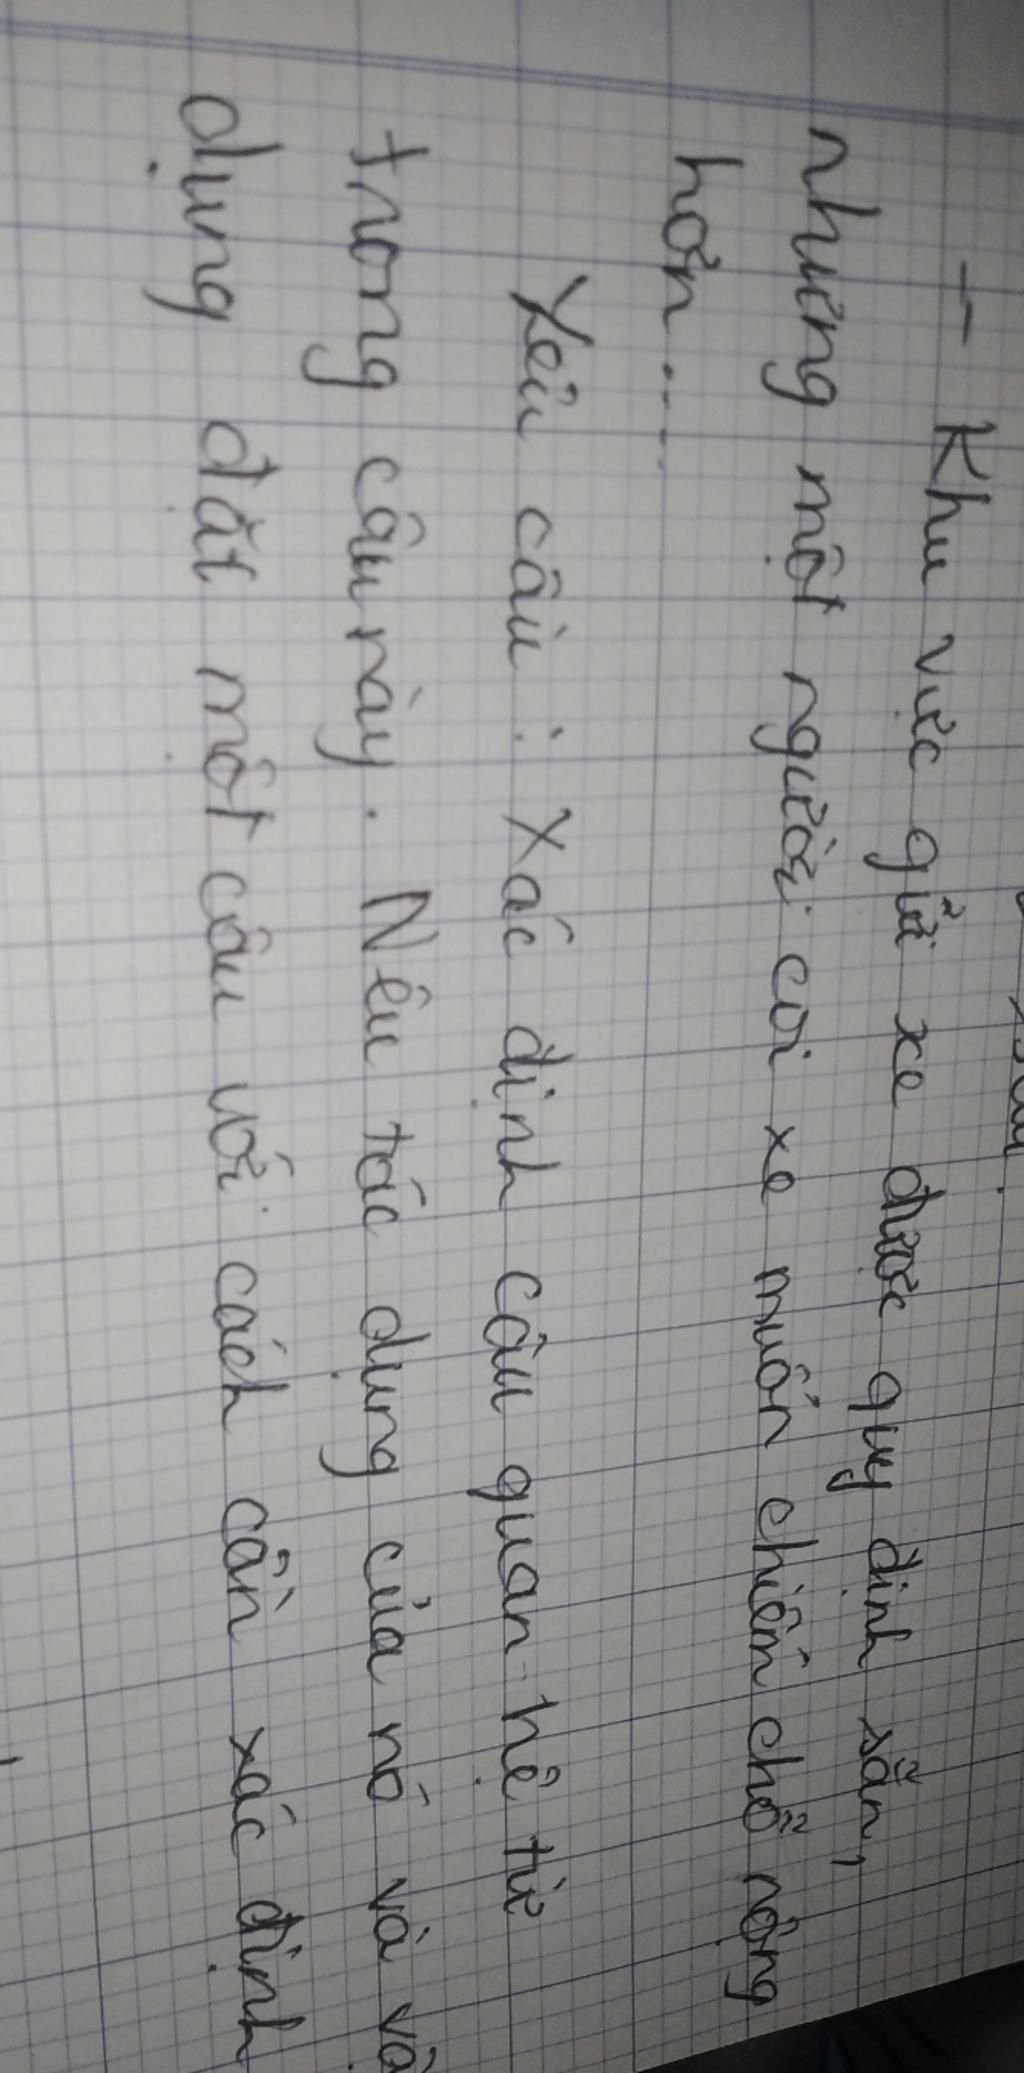 - Khu vực giữ xe được quy định sẵn,
nhưng một người coi xe muốn chiếm chỗ rộng
hơn ...
Yêu cầu : Xác định câu quan hệ từ
trong câu này. Nêu tác dụng của nó và vậ
dụng đặt một câu với cách cần xác định